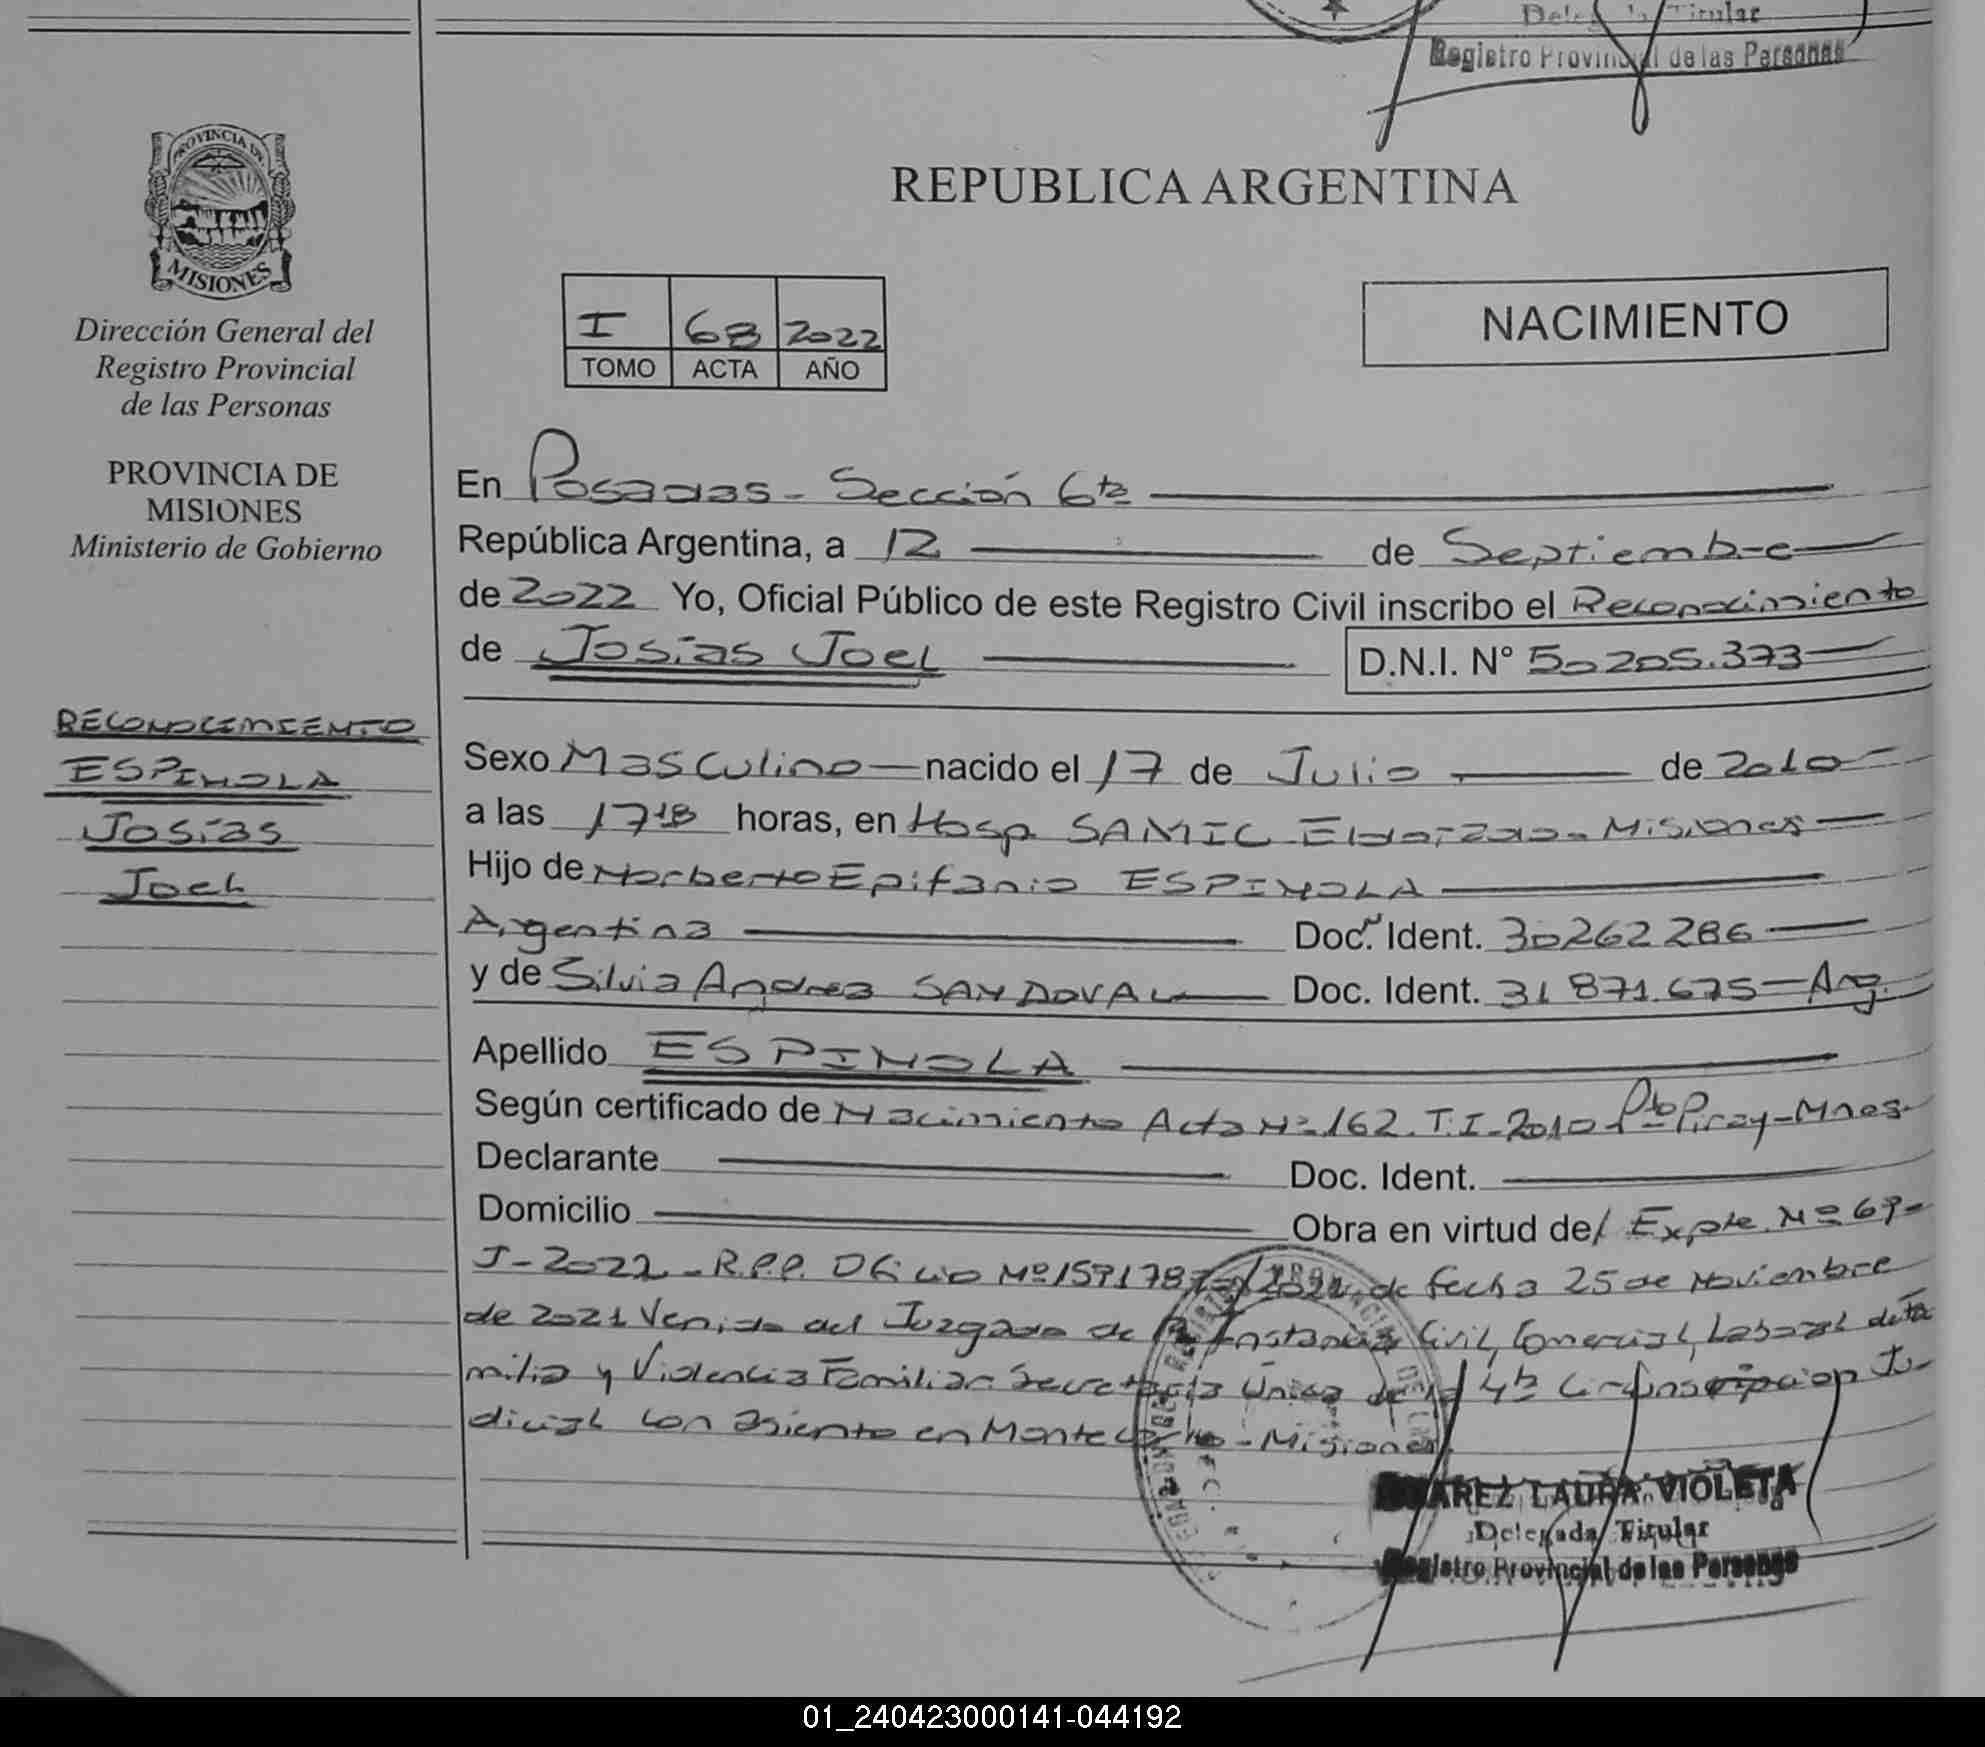 Delegada Titular
Registro Provincial de las Personas
PROVINCIA DE
MISIONES
Dirección General del
Registro Provincial
de las Personas
PROVINCIA DE
MISIONES
Ministerio de Gobierno
RECONOCIMIENTO
ESPINOLA
Josías
Joel
REPUBLICA ARGENTINA
I 68 2022
TOMO ACTA AÑO
NACIMIENTO
En Posadas - Sección 6ta
República Argentina, a 12 de Septiembre
de 2022 Yo, Oficial Público de este Registro Civil inscribo el Reconocimiento
de Josías Joel D.N.I. N° 50.205.373
Sexo Masculino nacido el 17 de Julio de 2010
a las 17 18 horas, en Hosp SAMIC Eldorado - Misiones
Hijo de Norberto Epifanio ESPINOLA
Argentina Doc. Ident. 30262286
y de Silvia Andrea SANDOVAL Doc. Ident. 31871.675 - Arg.
Apellido ESPINOLA
Según certificado de Nacimiento Acta Nº 162. T.I - 2010 Pto Piray - Mnes
Declarante Doc. Ident.
Domicilio Obra en virtud de/ Expte. Nº 69-
J-2022 - R.P.P. Oficio Nº de fecha 25 de Noviembre
de 2021 Venido del Juzgado de Instancia Civil, Comercial, Laboral de Fa
milia y Violencia Familiar Secretaría Única de la 4ta Circunscripción Ju-
dicial con asiento en Montecarlo - Misiones.
SUAREZ LAURA VIOLETA
Delegada Titular
Registro Provincial de las Personas
01_240423000141-044192